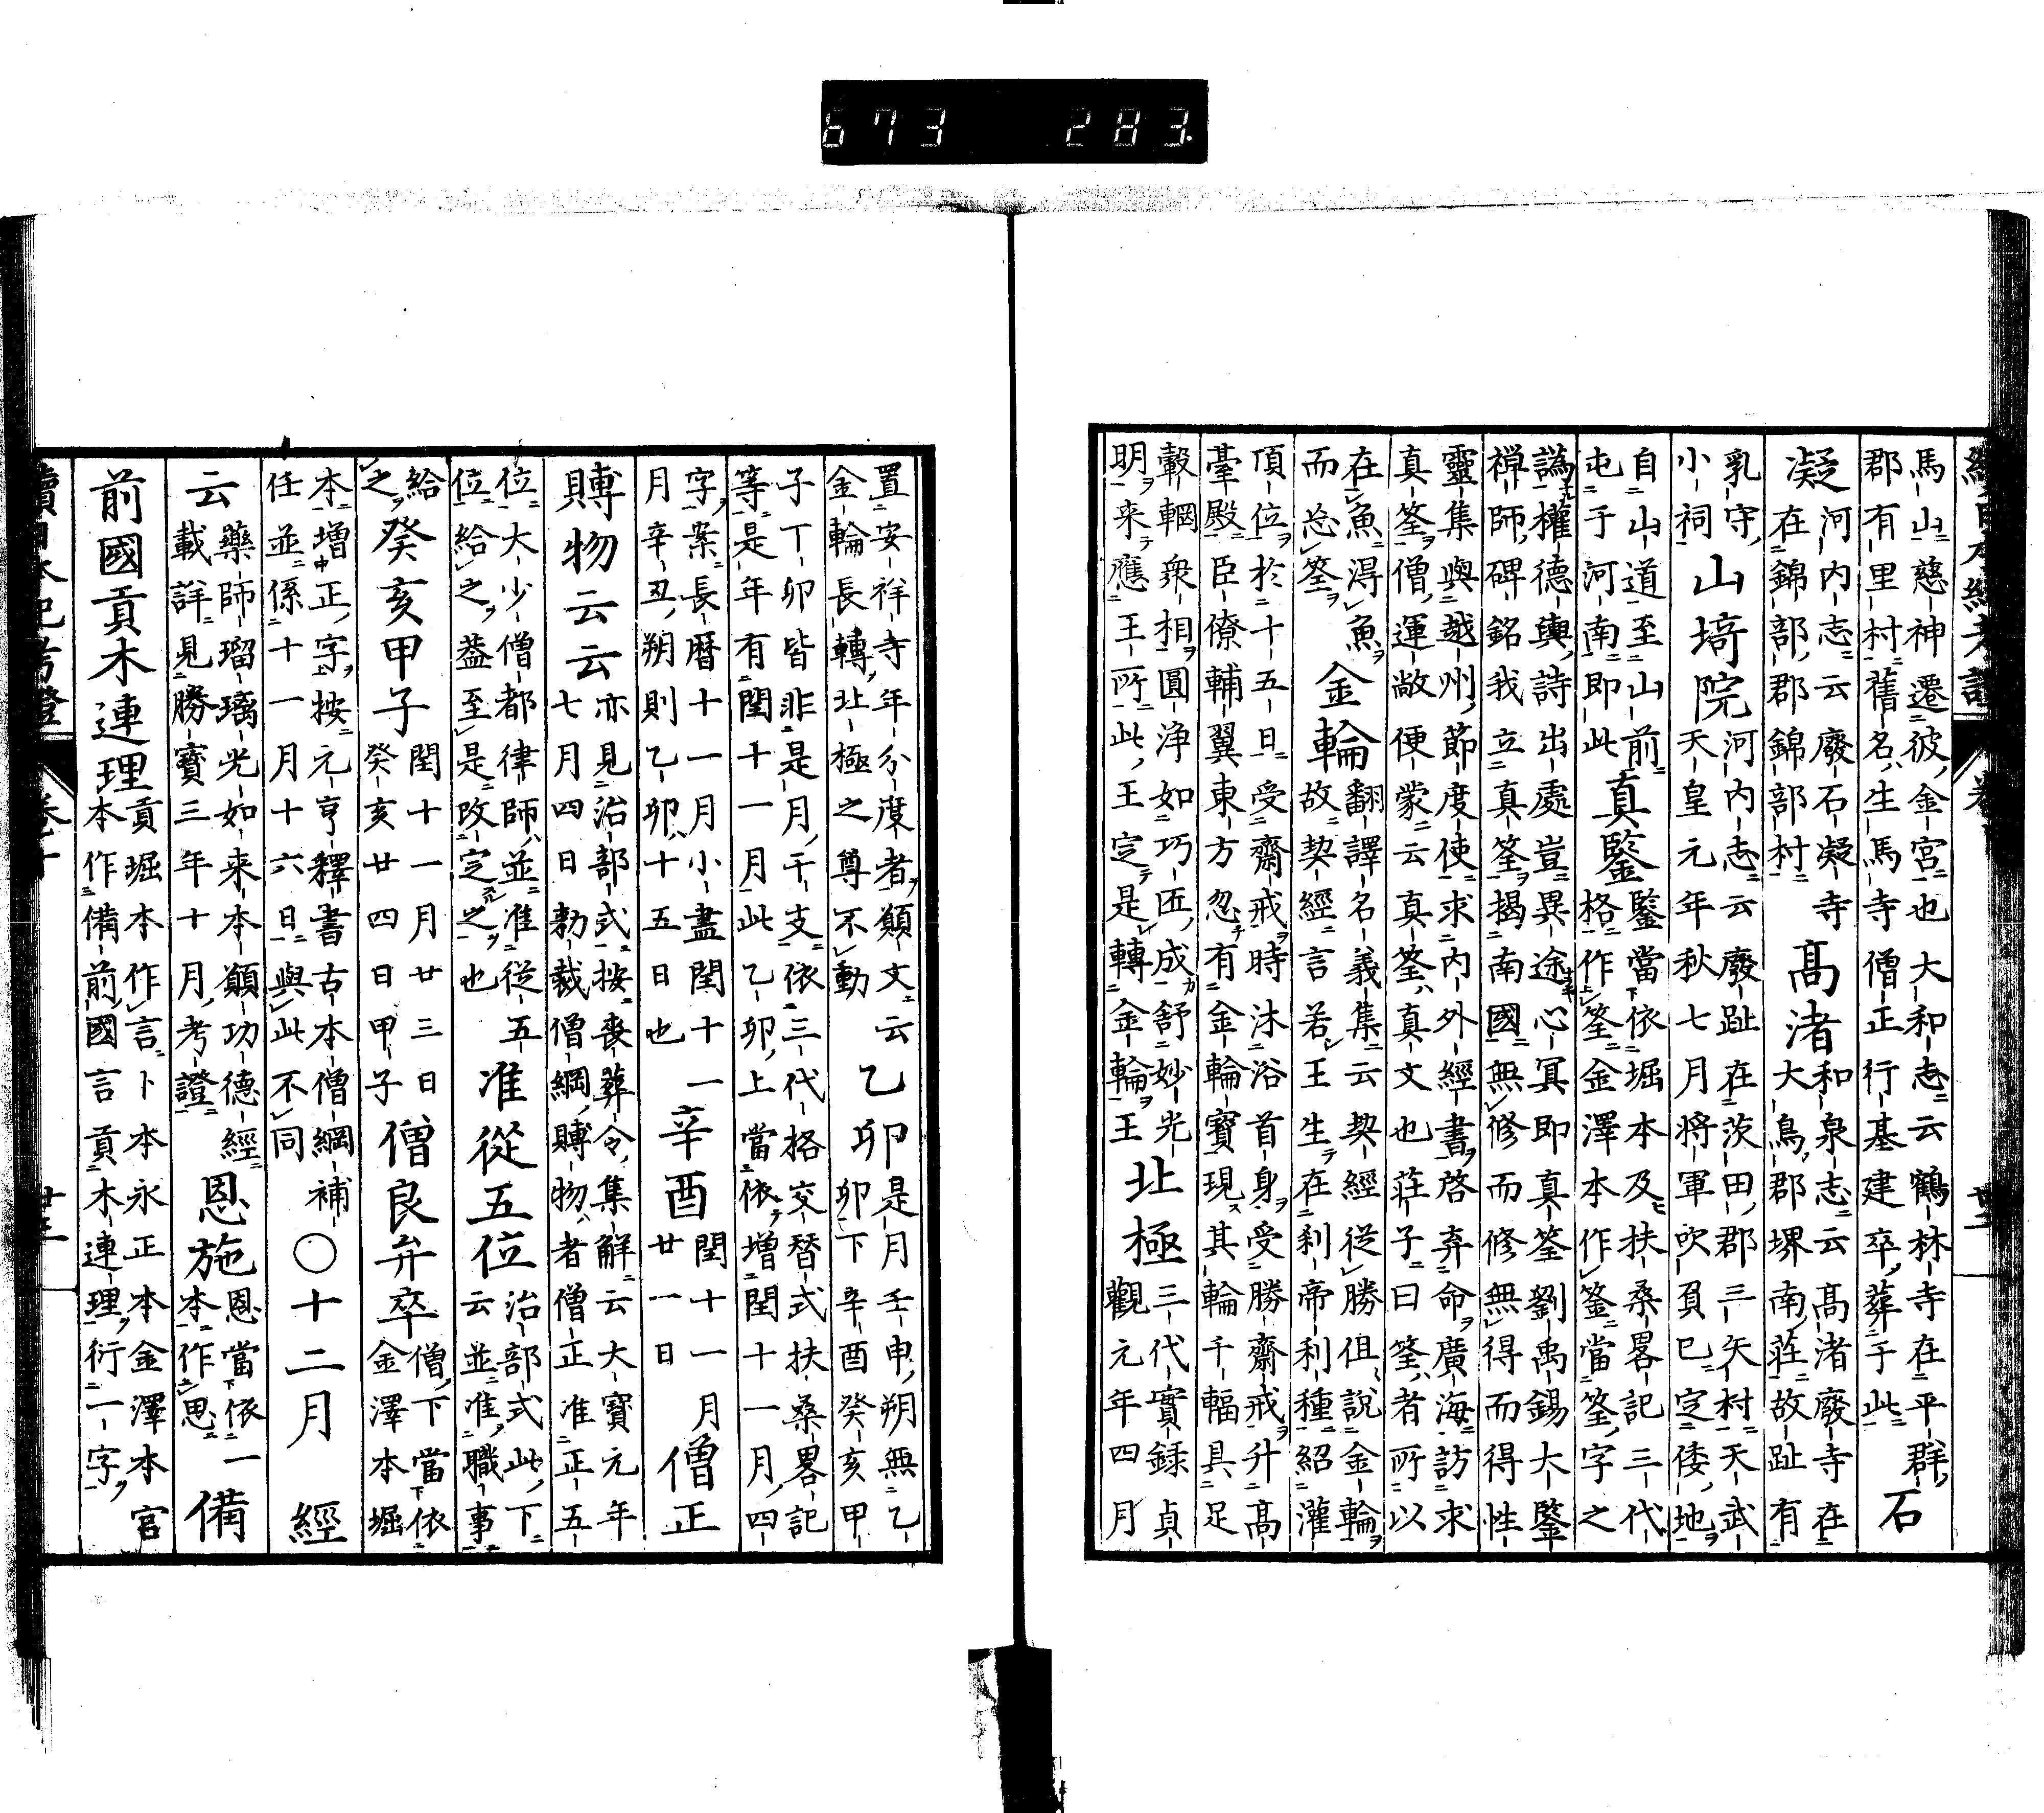 673 283.
馬山慈神遷彼金宮也大和志云鶴林寺在平群
郡有里村舊名生馬寺僧正行基建卒葬于此
石
凝
河内志云廢石凝寺
在錦部郡錦部村
高渚
和泉志云高渚廢寺在
大鳥郡堺南荘故趾有
乳守
小祠
山埼院
河内志云廢趾在茨田郡三矢村天武
天皇元年秋七月将軍吹負已定倭地
自山道至山前
屯于河南即此
真鑒
鑒當依堀本及扶桑畧記三代
格作筌金澤本作筌當筌字之
譌權德輿詩出處豈異途心冥即真筌劉禹錫大鑒
禅師碑銘我立真筌揭南國無修而修無得而得性
靈集與越州節度使求内外經書啓弃命廣海訪求
真筌僧運敝便蒙云真筌真文也荘子曰筌者所以
在魚淂魚
而忘筌
金輪
翻譯名義集云契經從勝但說金輪
故契經言若王生在刹帝利種紹灌
頂位於十五日受齋戒時沐浴首身受勝齋戒升高
臺殿臣僚輔翼東方忽有金輪寶現其輪千輻具足
轂輞衆相圓浄如巧匠成舒妙光
明来應王所此王定是轉金輪王
北極
三代實録貞
觀元年四月
置安祥寺年分度者願文云
金輪長轉北極之尊不動
乙卯
是月壬申朔無乙
卯下辛酉癸亥甲
子丁卯皆非是月干支依三代格交替式扶桑畧記
等是年有閏十一月此乙卯上當依增閏十一月四
字案長暦十一月小盡閏十一
月辛丑朔則乙卯十五日也
辛酉
閏十一月
廿一日
僧正
賻物云云
亦見治部式按喪葬令集解云大寶元年
七月四日勅裁僧綱賻物者僧正准正五
位大少僧都律師並准從五
位給之葢至是改定之也
准從五位
治部式此下
云並准職事
給
之
癸亥甲子
閏十一月廿三日
癸亥廿四日甲子
僧良弁卒
僧下當依
金澤本堀
本增正字按元亨釋書古本僧綱補
任並係十一月十六日與此不同
○十二月
經
云
藥師瑠璃光如来本願功德經
載詳見勝寶三年十月考證
恩施
恩當依一
本作思
備
前國貢木連理
貢堀本作言卜本永正本金澤本宮
本作備前國言貢木連理衍一字